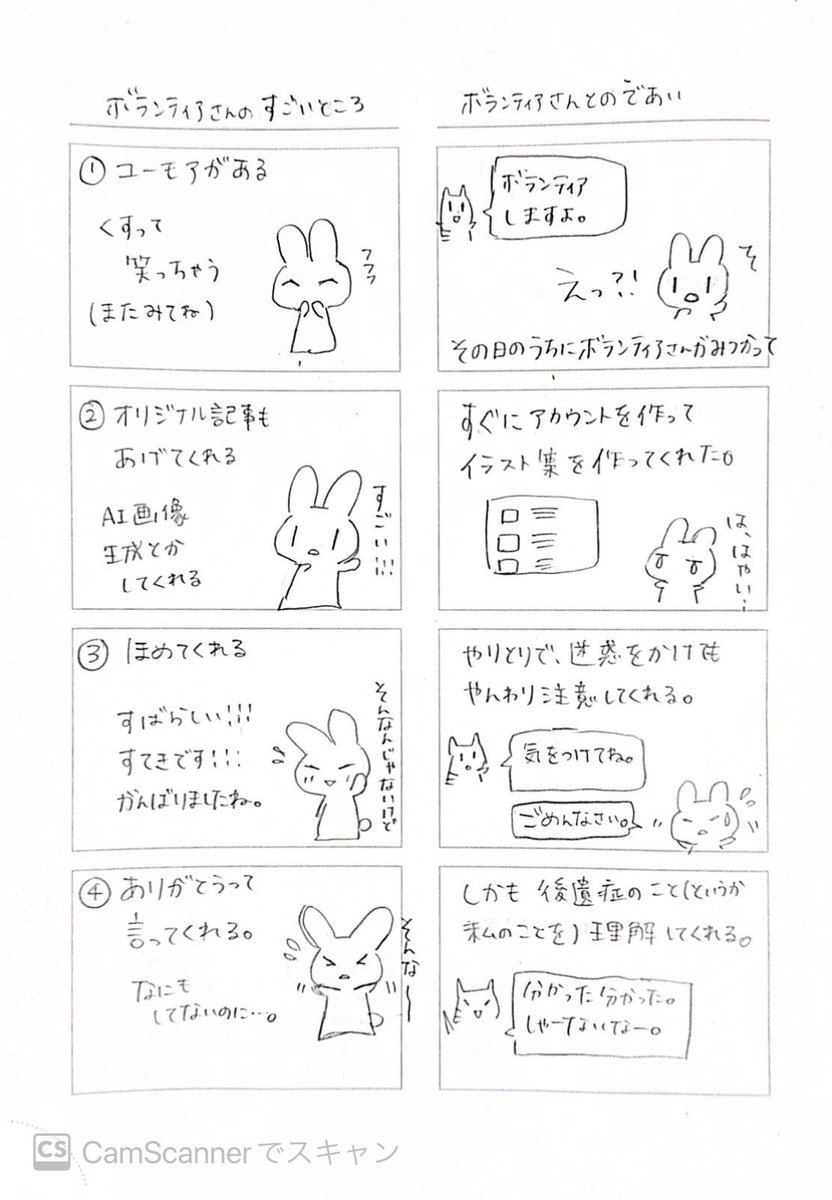 ボランティアさんとのであい
ボランティア
しますよ。
そ
えっ?!
その日のうちにボランティアさんがみつかって
すぐにアカウントを作って
イラスト集を作ってくれた。
は、はやい…
やりとりで、迷惑をかけても
やんわり注意してくれる。
気をつけてね。
ごめんなさい。
しかも 後遺症のこと(というか
私のことを)理解してくれる。
分かった分かった。
しゃーないなー。
ボランティアさんの すごいところ
① ユーモアがある
くすって
笑っちゃう
(またみてね)
フフフ
② オリジナル記事も
あげてくれる
AI画像
生成とか
してくれる
すごい!!!
③ ほめてくれる
すばらしい!!!
すてきです!!!
がんばりましたね。
そんなんじゃないけど
④ ありがとうって
言ってくれる。
なにも
してないのに…。
そんな〜
CS CamScannerでスキャン